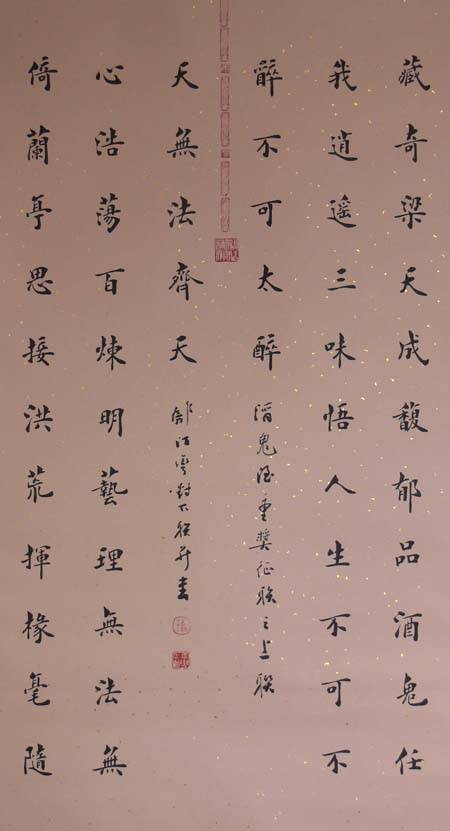 藏奇梁天成馥郁品酒鬼任
我逍遥三味悟人生不可不
醉不可太醉
酒鬼酒重獎征联之上联
倚蘭亭思接洪荒揮椽毫隨
心浩蕩百煉明藝理無法無
天無法齊天
江雲對下联并書